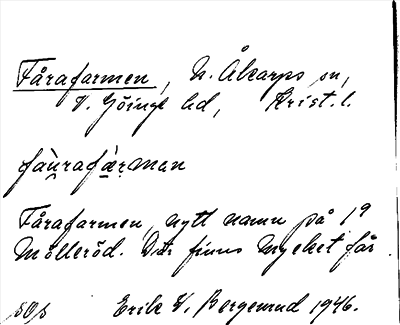 Fårafarmen, N. Åkarps sn,
V. Göinge hd, Krist. l.
fàu̯rafàrman
Fårafarmen, nytt namn på 19
Mölleröd. Där finns mycket får
Erik V. Bergemud 1946.